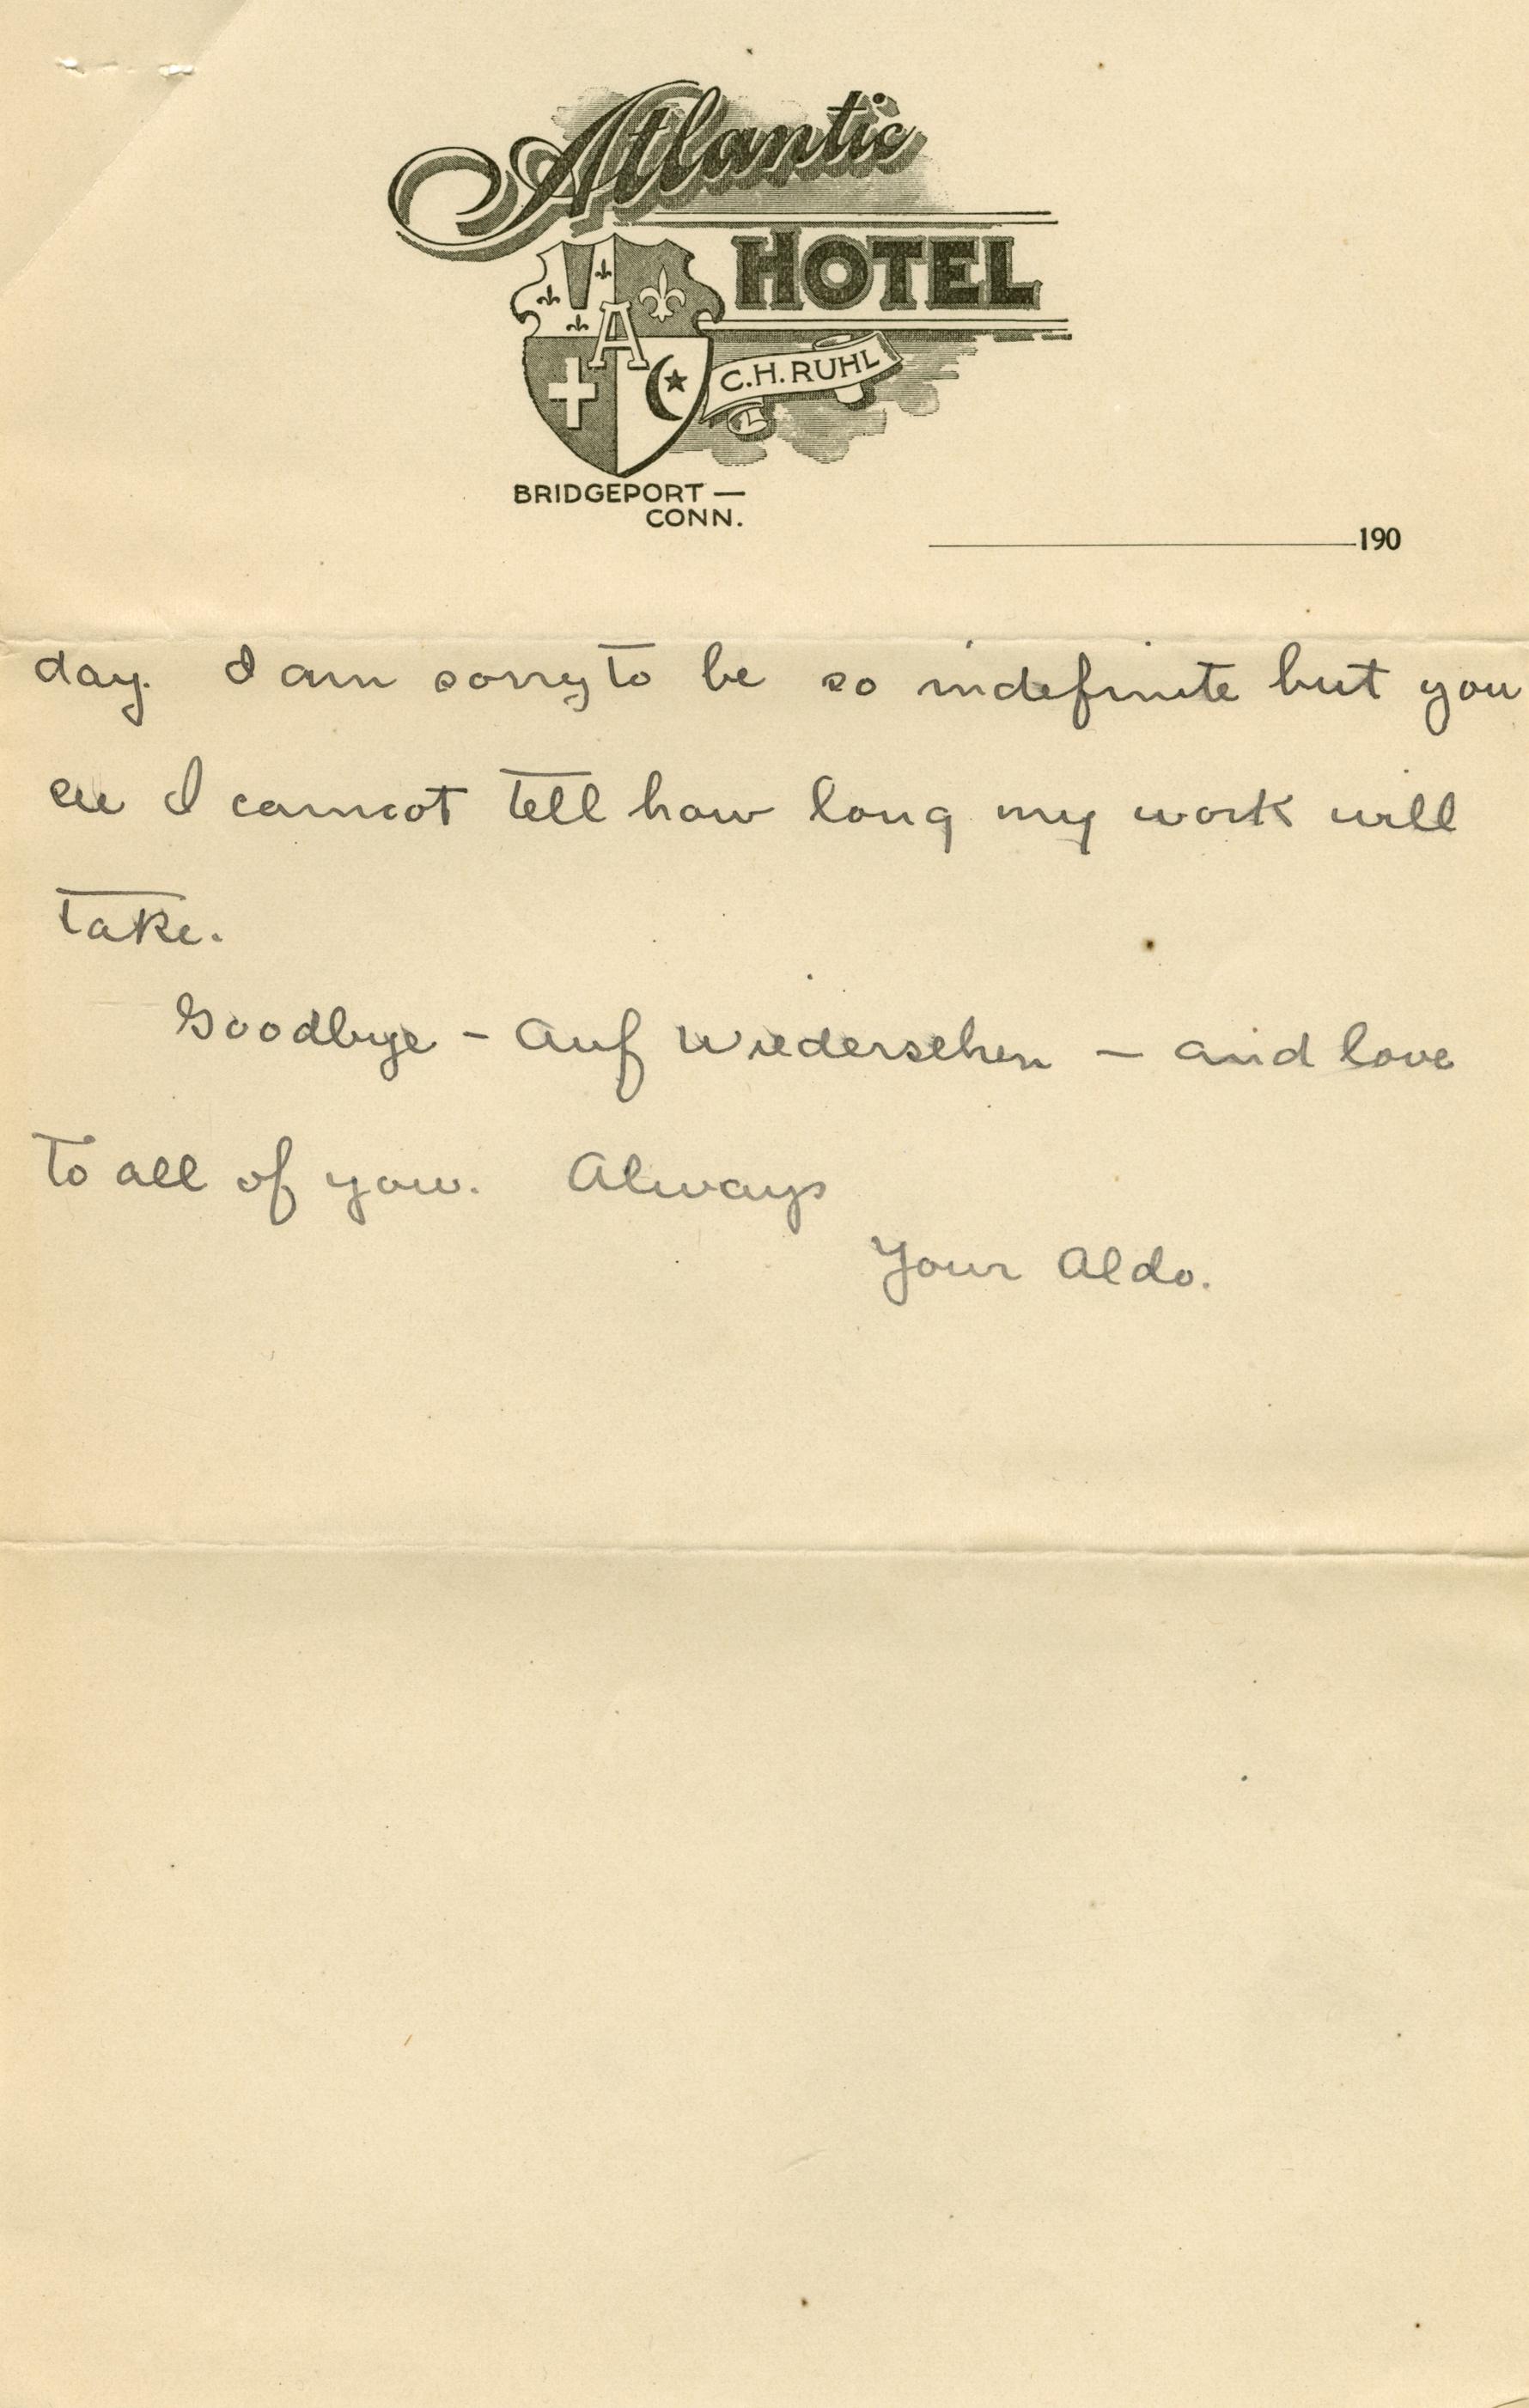 Atlantic
HOTEL
A
C.H. RUHL
BRIDGEPORT —
CONN.
190
day. I am sorry to be so indefinite but you
see I cannot tell how long my work will
take.
Goodbye - Auf Wiedersehen - and love
to all of you. Always
Your Aldo.